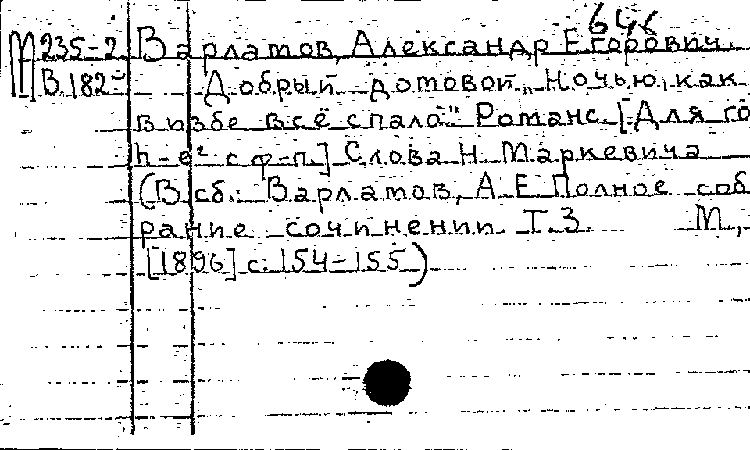 646
М 235-2 Варламов, Александр Егорович.
В.182= Добрый домовой „Ночью, как
в избе всё спало." Романс. [Для го
h-e² с ф-п.] Слова Н. Маркевича
(В сб.: Варламов, А.Е. Полное соб
рание сочинений. Т.3. М.,
[1896] с. 154-155)